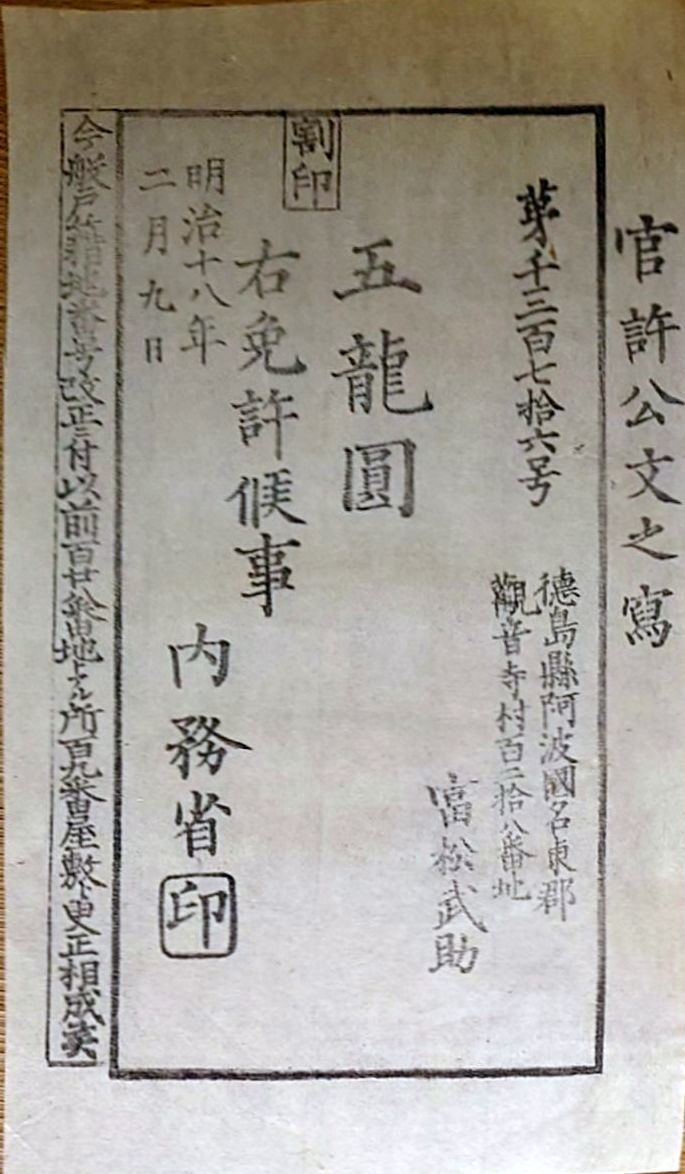 官許公文之寫
第千三百七拾六号
德島縣阿波國名東郡
觀音寺村百二拾八番地
富松武助
五龍圓
割印
右免許候事
明治十八年
二月九日
内務省印
今般戸籍地番号改正ニ付以前百廿八番地ナル所百九番屋敷ト更正相成候